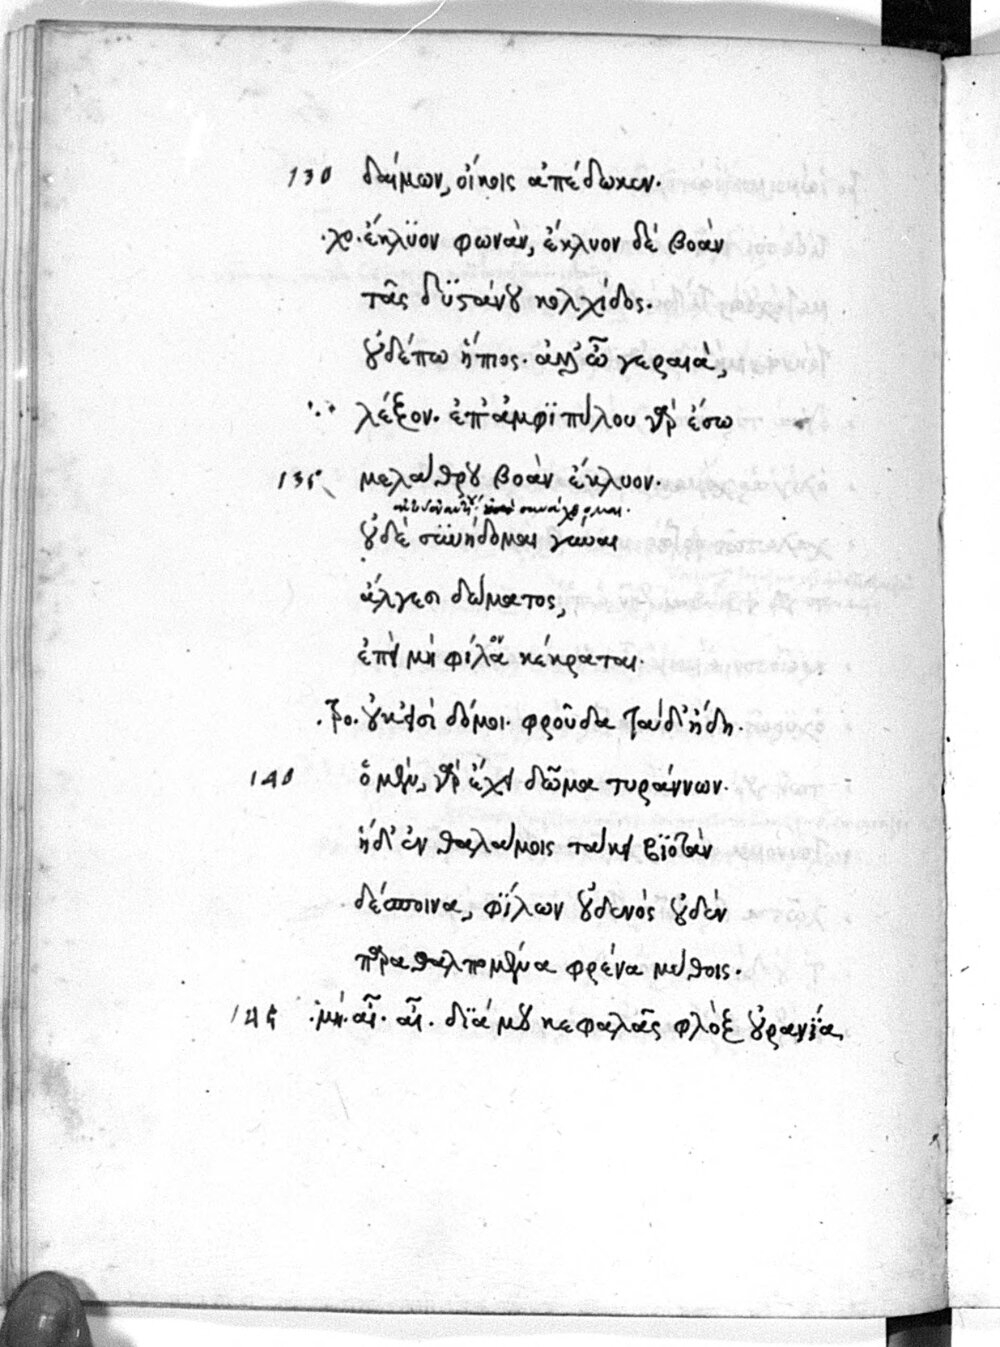 130 δαίμων, οἴκοις ἀπέδωκεν·
·χο· ἔκλϋον φωνὰν, ἔκλυον δὲ βοὰν
τᾶς δϋστάνου κολχίδος·
οὐδέπω ἤπιος· ἀλλ' ὦ γεραιὰ,
λέξον· ἐπ' ἀμφϊπύλου γὰρ ἔσω
135 μελάθρου βοὰν ἔκλυον·
οὐδὲ σϋνήδομαι γύναι
ἄλγεσι δώματος,
ἐπεὶ μὴ φίλα ον κέκραται·
·τρο· οὐκ εἰσὶ δόμοι· φροῦδα ταῦδ' ἤδη·
140 ὁ μὲν, γὰρ ἔχει δῶμα τυράννων·
ἡ δ' ἐν θαλάμοις τάκει βϊοτὰν
δέσποινα, φϊλων οὐδενὸς οὐδὲν
παραθαλπομένα φρένα μύθοις·
145 ·μή· αἶ· αἶ· δϊά μου κεφαλᾶς φλὸξ οὐρανϊα,